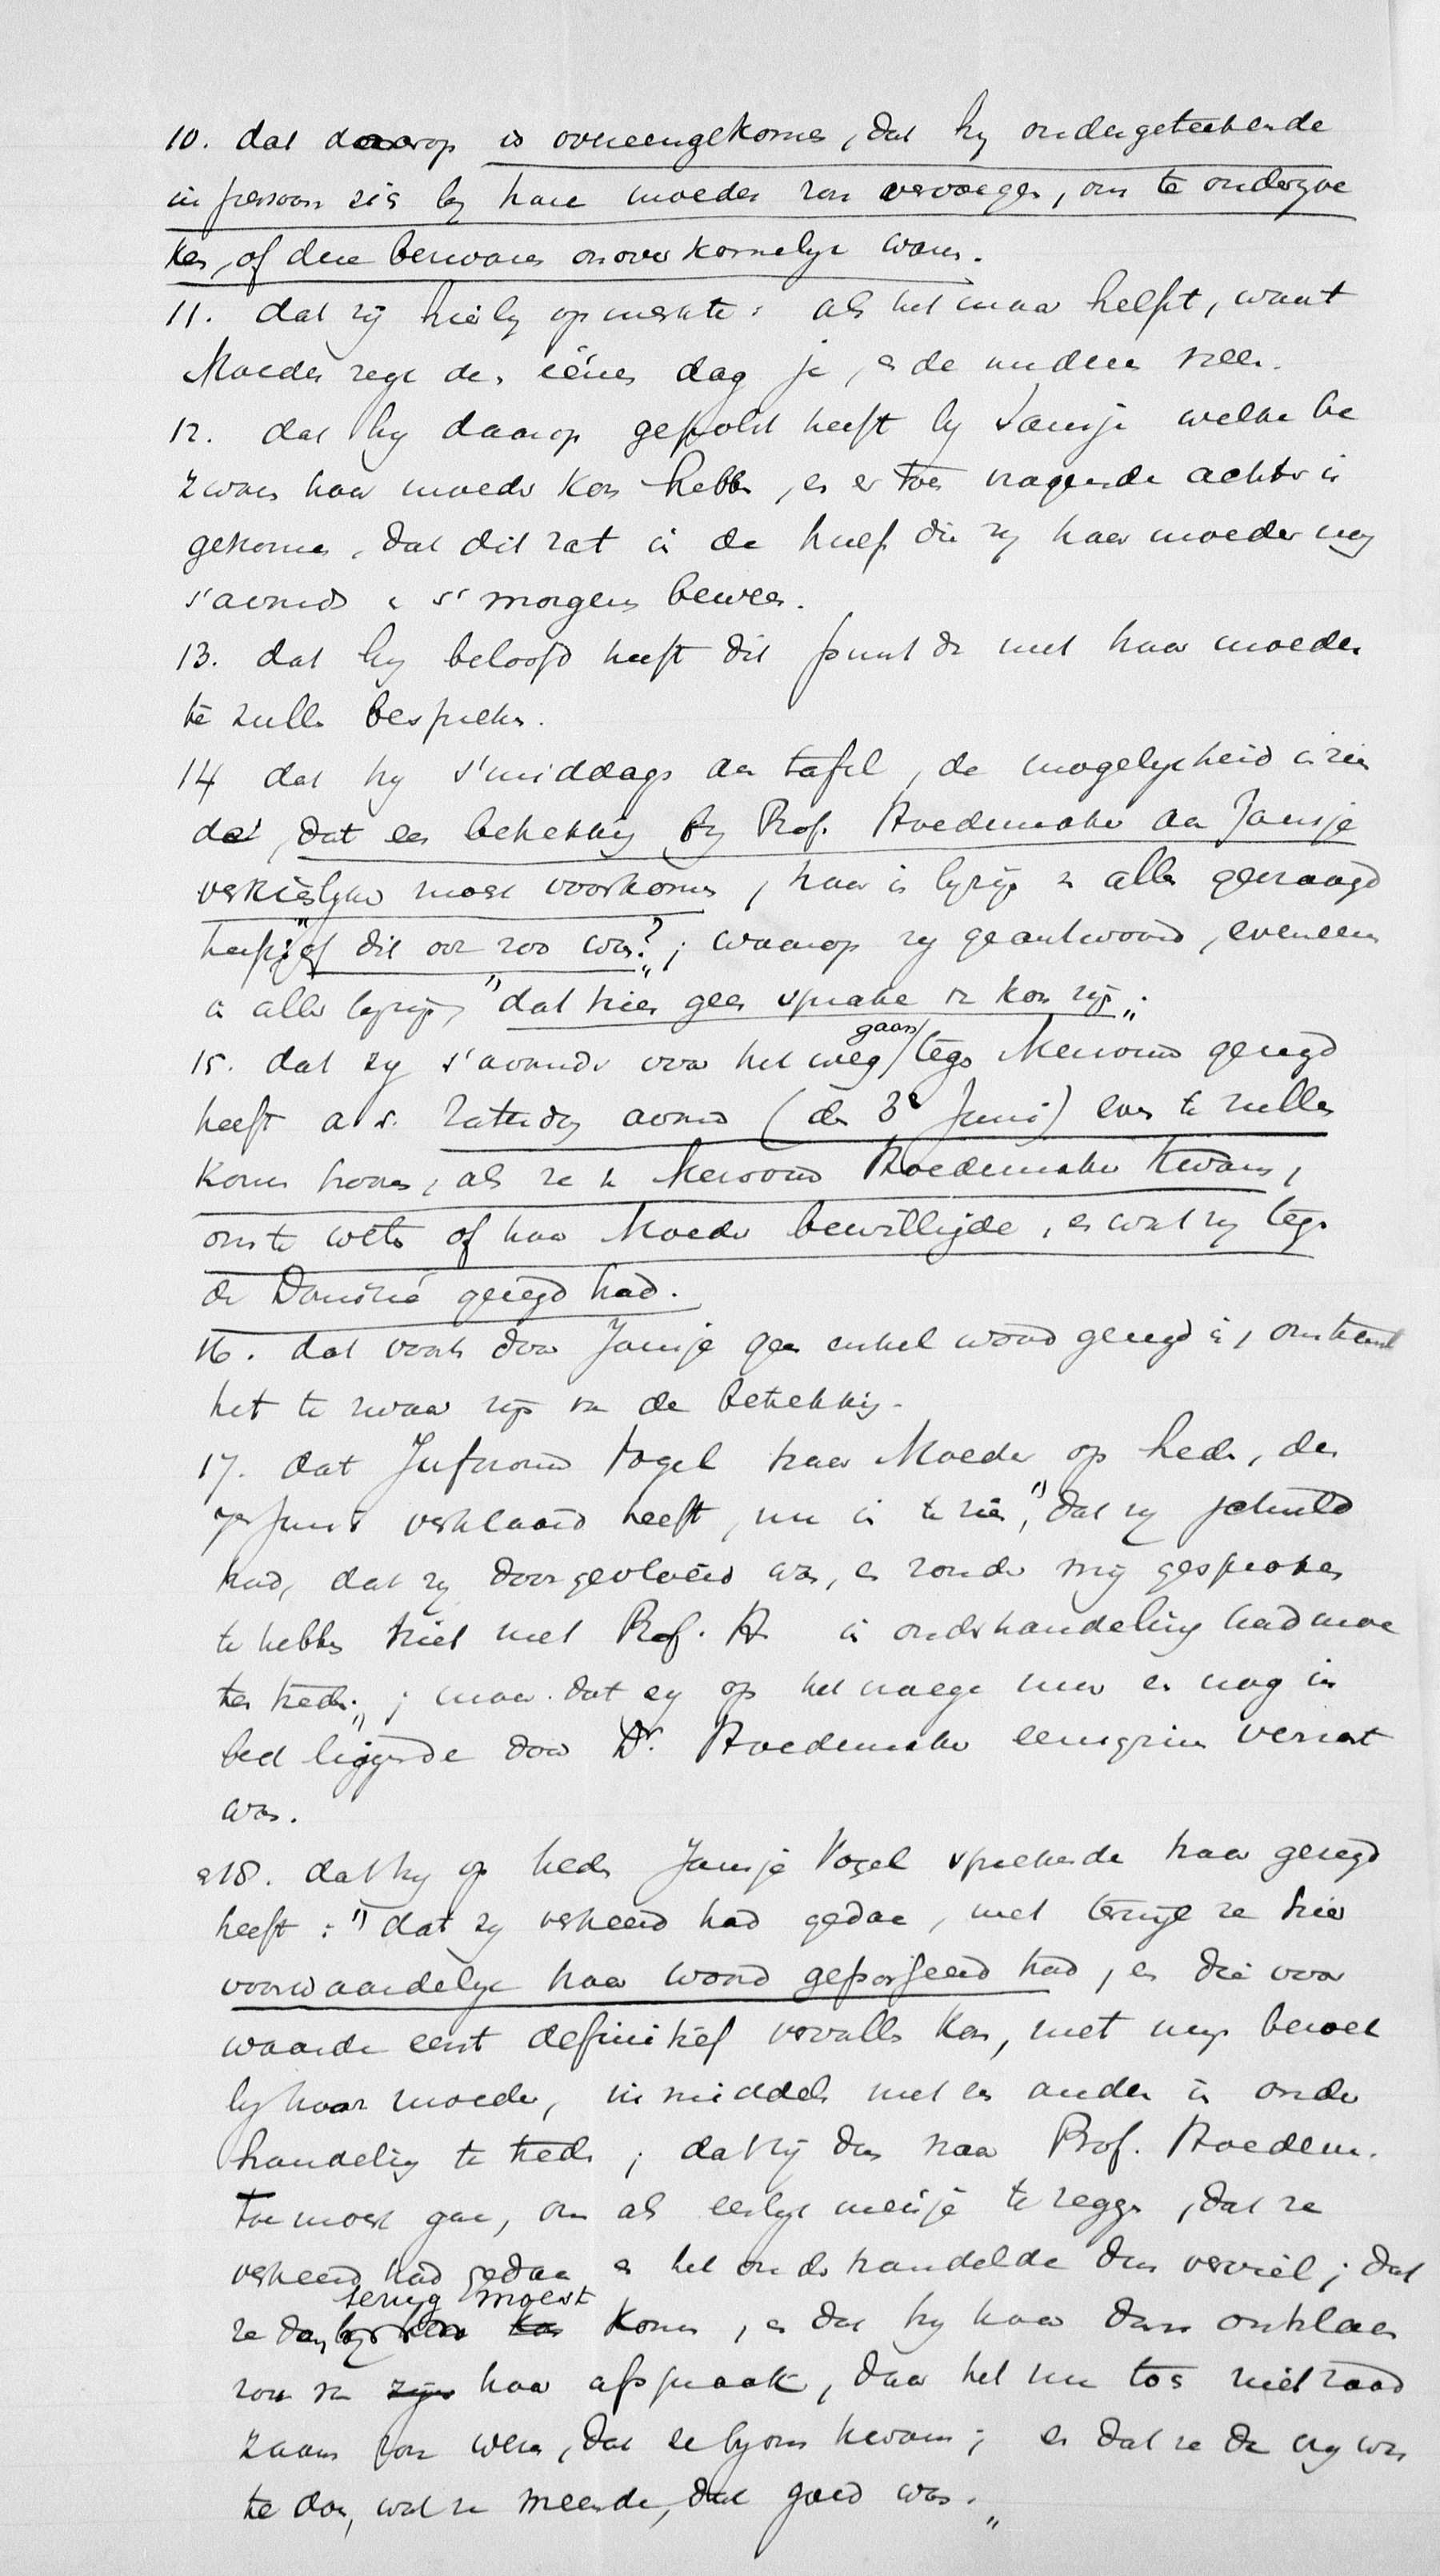 10. dat daarop is overeengekomen, dat hy ondergeteekende
in persoon zich by hare moeder zou vervoegen, om te onderzoe
ken, of deze bezwaren onoverkomelyk waren.
11. dat zij hierby opmerkte: als het maar helpt, want
Moeder zegt den éénen dag ja, en de andere neen.
12. dat hy daarop gepolst heeft by Jansje welke be
zwaren haar moeder kon hebben, en er toen vragende achter is
gekomen, dat dit zat in de hulp die zy haar moeder nog
s'avonds en s'morgens bewees.
13. dat hy beloofd heeft dit punt dan met haar moeder
te zullen bespreken.
14 dat hy s'middags aan tafel, de mogelykheid inzien
de, dat een betrekking by Prof. Hoedemaker aan Jansje
verkieslyker moest voorkomen, haar in byzijn van allen gevraagd
heeft: "of dit ook zoo was?"; waarop zy geantwoord, eveneens
in aller byzijn, "dat hier geen sprake van kon zijn".
15. dat zy s'avonds voor het weg gaan tegen Mevrouw gezegd
heeft a.s. Zaterdag avond (den 3e Juni) even te zullen
komen hooren, als ze van Mevrouw Hoedemaker kwam,
om te weten of haar Moeder bewilligde, en wat zy tegen
de Dominé gezegd had.
16. dat voorts door Jansje geen enkel woord gezegd is, omtrent
het te zwaar zijn van de betrekking.
17. dat Jufvrouw Vogel haar Moeder op heden, den
7en Juni verklaard heeft, nu in te zien, "dat zy schuld
had, dat zy doorgevloeid was, en zonder mij gesproken
te hebben niet met Prof. H. in onderhandeling had moe
ten treden"; maar dat zy op het vroege uur en nog in
bed liggende door Dr. Hoedemaker eenigzins verrast
was.
en 18. dat hy op heden Jansje Vogel sprekende haar gezegd
heeft: "dat zy verkeerd had gedaan, met terwijl ze hier
voorwaardelyk haar woord gepasseerd had, en die voor
waarde eerst definitief vervallen kon, met mijn bezoek
by haar moeder, inmiddels met een ander in onder
handeling te treden; dat zij dus naar Prof. Hoedem.
toe moest gaan, om als eerlyk meisje te zeggen, dat ze
verkeerd had gedaan en het onderhandelde dus verviel; dat
ze dan terug moest komen, en dat hy haar dan ontslaan
zou van haar afspraak, daar het nu toch niet raad
zaam zou wezen, dat ze by ons kwam; en dat ze dan vry was
te doen, wat ze meende, dat goed was."